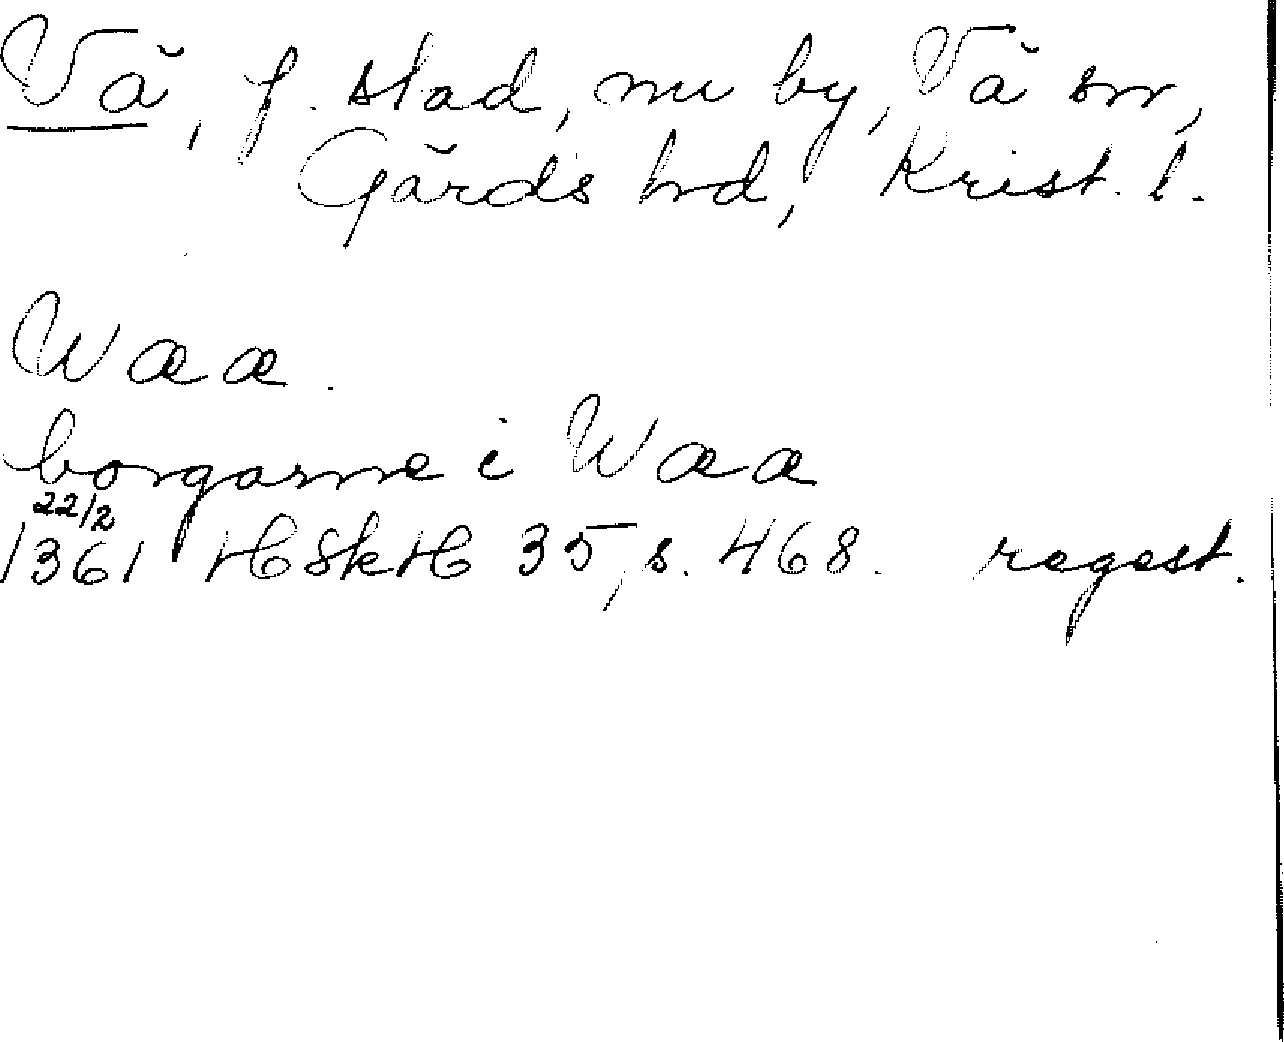 Vå, f. stad, nu by, Vå sn,
Gärds hd, Krist. l.
Waa.
borgarne i Waa
22/2
1361 HSkH 35, s. 468. regest.